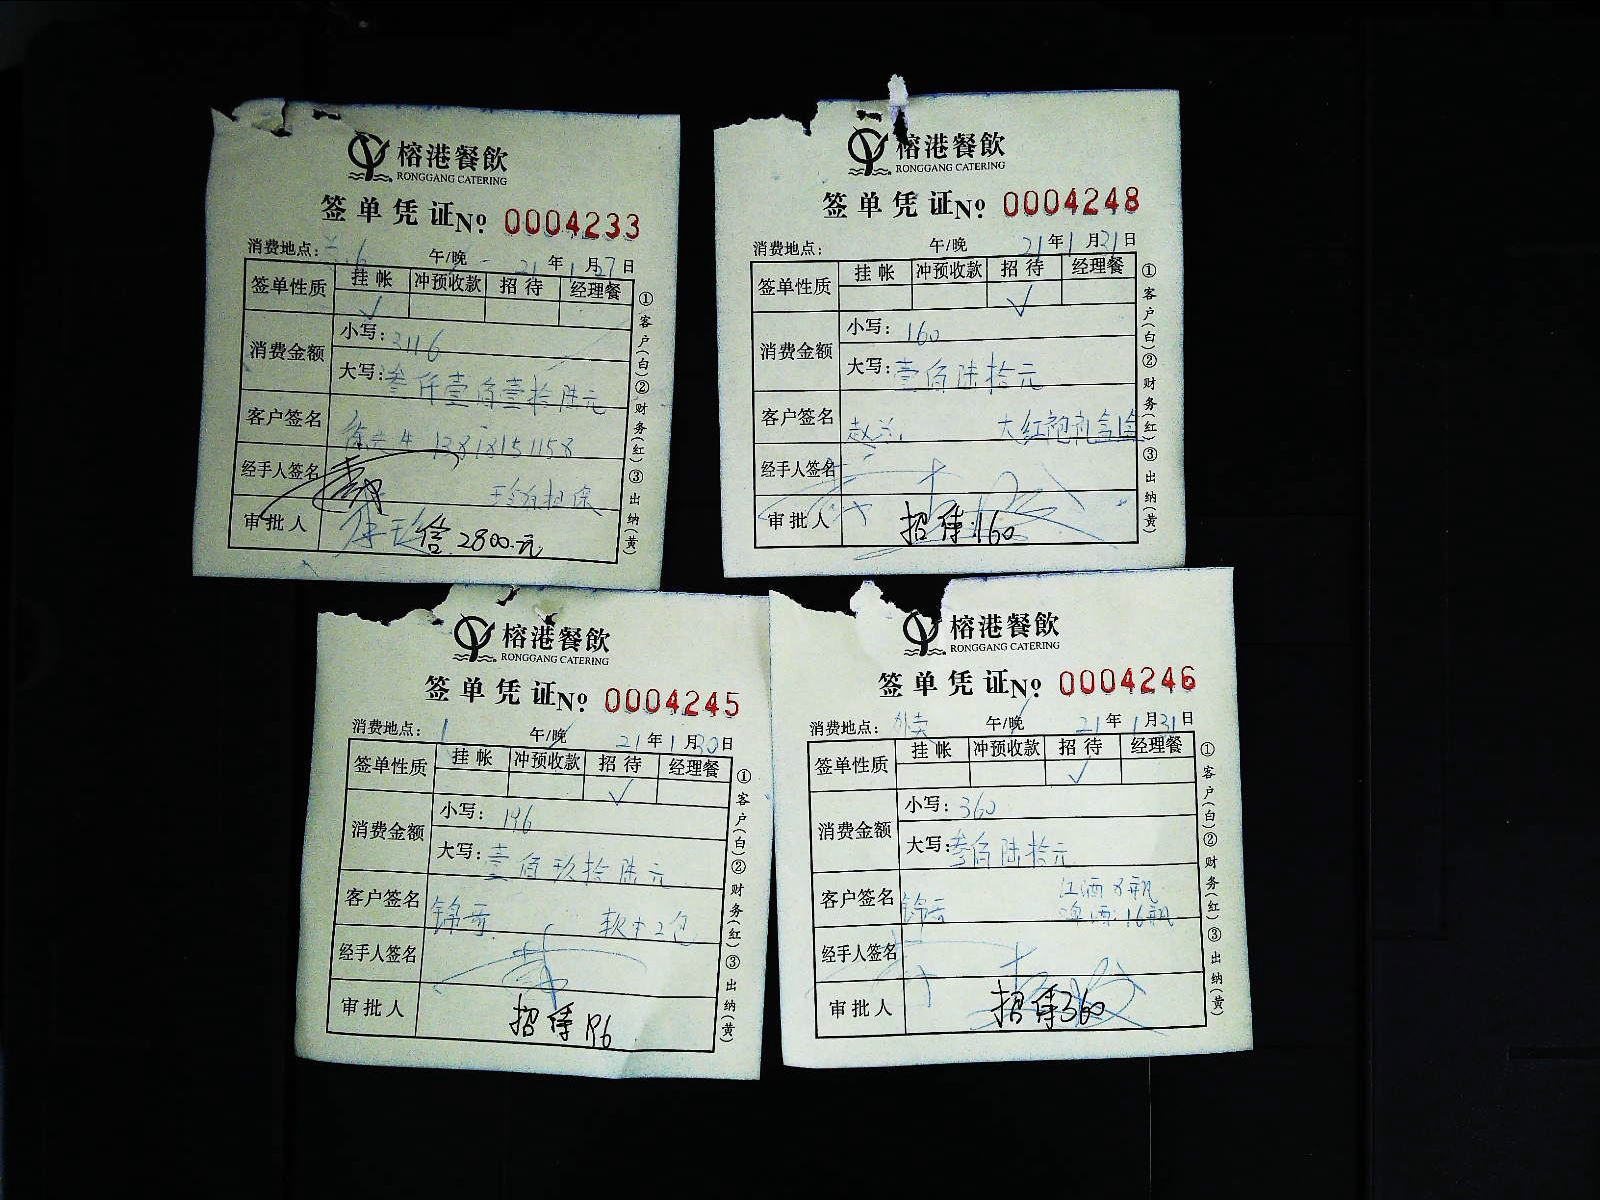 榕港餐飲
RONGGANG CATERING
签单凭证 № 0004233
消费地点： 午/晚 21年1月27日
签单性质 挂帐 冲预收款 招待 经理餐
✓
消费金额 小写：3116
大写：叁仟壹佰壹拾陆元
客户签名
经手人签名 担保
审批人 2800.元
①客户(白)②财务(红)③出纳(黄)
榕港餐飲
RONGGANG CATERING
签单凭证 № 0004248
消费地点： 午/晚 21年1月31日
签单性质 挂帐 冲预收款 招待 经理餐
✓
消费金额 小写：160
大写：壹佰陆拾元
客户签名 大红袍礼盒1盒
经手人签名
审批人 招待160
①客户(白)②财务(红)③出纳(黄)
榕港餐飲
RONGGANG CATERING
签单凭证 № 0004245
消费地点：1 午/晚 21年1月30日
签单性质 挂帐 冲预收款 招待 经理餐
✓
消费金额 小写：196
大写：壹佰玖拾陆元
客户签名 锦哥 软中2包
经手人签名
审批人 招待196
①客户(白)②财务(红)③出纳(黄)
榕港餐飲
RONGGANG CATERING
签单凭证 № 0004246
消费地点：外卖 午/晚 21年1月31日
签单性质 挂帐 冲预收款 招待 经理餐
✓
消费金额 小写：360
大写：叁佰陆拾元
客户签名 锦哥
经手人签名
审批人 招待360
①客户(白)②财务(红)③出纳(黄)